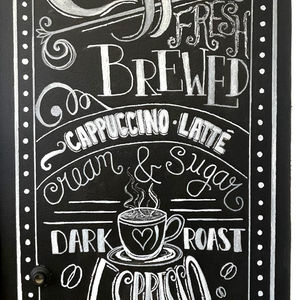 FRESH
BREWED
CAPPUCCINO · LATTÉ
cream & sugar
DARK ROAST
ESPRESSO